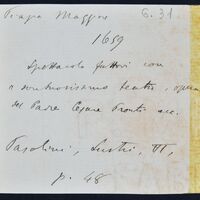 Piazza Maggiore 6. 31.
1659
Spettacolo fattovi con
sontuosissimo teatro, opera
del Padre Cesare Pronti ecc.
Pasolini, Lustri, VI,
p. 48